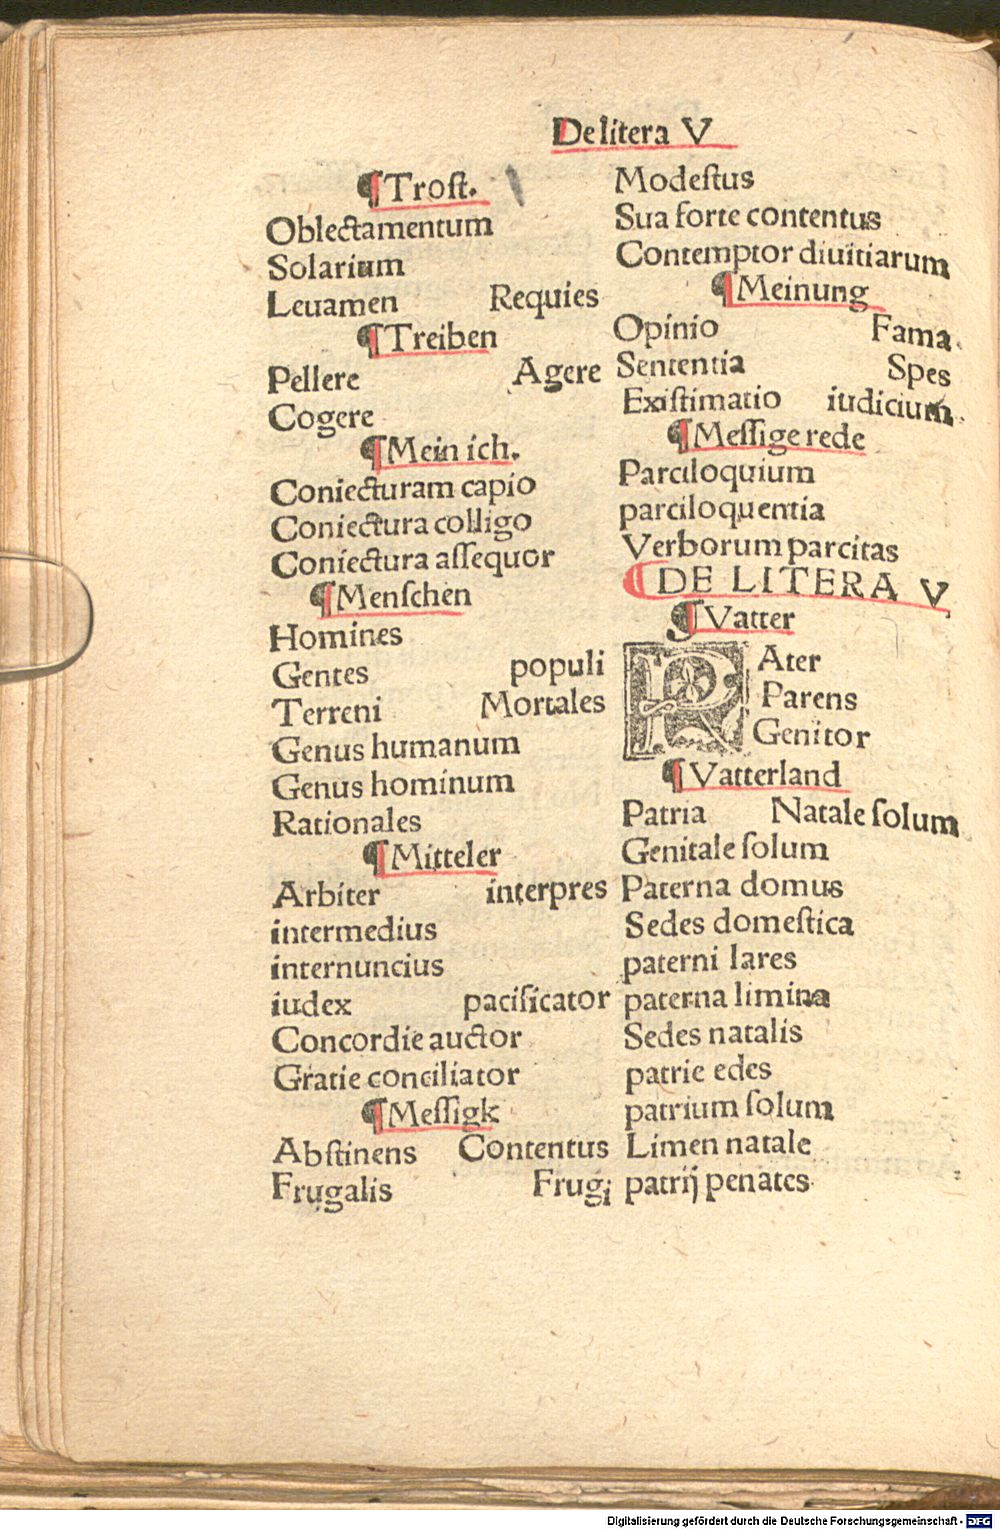 De litera V
¶ Troſt.
Oblectamentum
Solarium
Leuamen Requies
¶ Treiben
Pellere Agere
Cogere
¶ Mein ich.
Coniecturam capio
Coniectura colligo
Coniectura aſſequor
¶ Menſchen
Homines
Gentes populi
Terreni Mortales
Genus humanum
Genus hominum
Rationales
¶ Mitteler
Arbiter interpres
intermedius
internuncius
iudex pacificator
Concordie auctor
Gratie conciliator
¶ Meſſigk
Abſtinens Contentus
Frugalis Frugi
Modeſtus
Sua forte contentus
Contemptor diuitiarum
¶ Meinung
Opinio Fama.
Sententia Spes
Exiſtimatio iudicium.
¶ Meſſige rede
Parciloquium
parciloquentia
Verborum parcitas
¶ DE LITERA V
¶ Vatter
PAter
Parens
Genitor
¶ Vatterland
Patria Natale ſolum
Genitale ſolum
Paterna domus
Sedes domeſtica
paterni lares
paterna limina
Sedes natalis
patrie edes
patrium ſolum
Limen natale
patrij penates
Digitalisierung gefördert durch die Deutsche Forschungsgemeinschaft - DFG